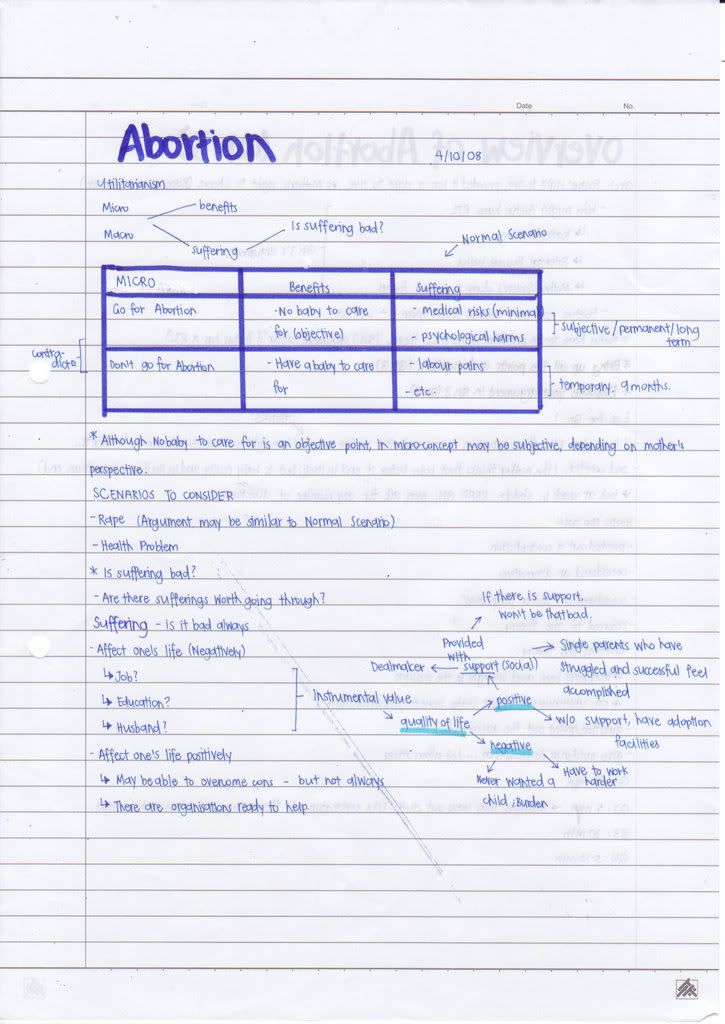 Date No.
Abortion 4/10/08
Utilitarianism
Micro
benefits
Macro
Is suffering bad?
suffering
Normal Scenario
MICRO Benefits Suffering
Go for Abortion - No baby to care - medical risks (minimal)
for (objective) - psychological harms
subjective/permanent/long
term
contra-
dicto
Don't go for Abortion - Have a baby to care - labour pains
for - etc.
temporary. 9 months.
* Although No baby to care for is an objective point, in micro-concept may be subjective, depending on mother's
perspective.
SCENARIOS TO CONSIDER
- Rape (Argument may be similar to Normal Scenario)
- Health Problem
* Is suffering bad?
- Are there sufferings worth going through?
Suffering - Is it bad always
- Affect one's life (Negatively)
↳ Job?
↳ Education?
↳ Husband?
Instrumental value
- Affect one's life positively
↳ May be able to overcome cons - but not always
↳ There are organisations ready to help.
If there is support,
won't be that bad.
Provided
with
Dealmaker
support (social)
Single parents who have
struggled and successful feel
accomplished
positive
quality of life
w/o support, have adoption
facilities
negative
Never wanted a
child ; Burden
Have to work
harder